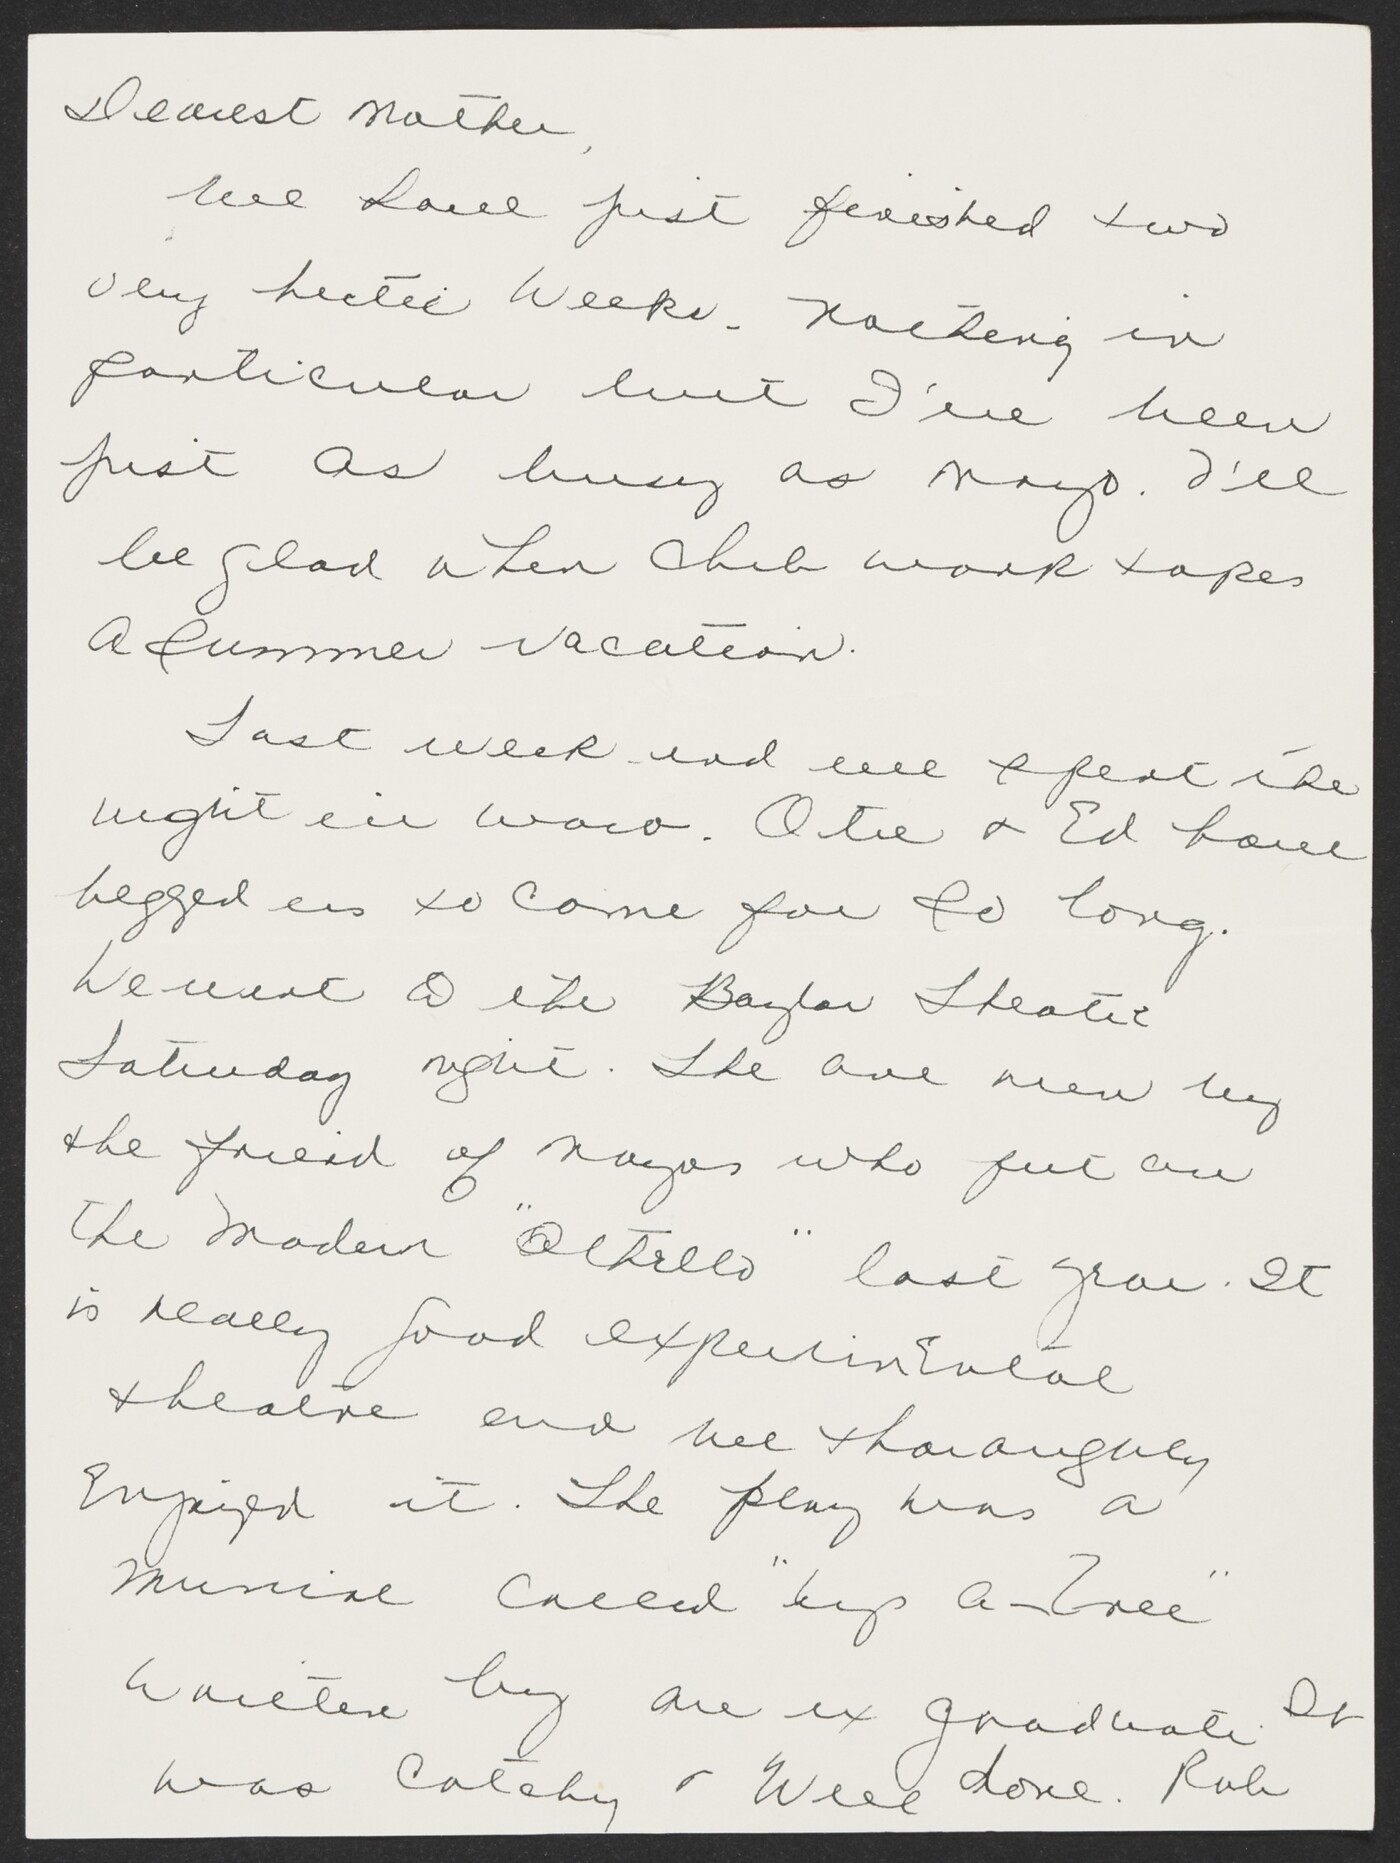 Dearest Mother,
We have just finished two
very hectic weeks. Nothing in
particular but I've been
just as busy as Mayo. I'll
be glad when Club work takes
a summer vacation.
Last week end we spent the
night in Waco. Otie & Ed have
begged us to come for so long.
We went to the Baylor Theatre
Saturday night. The one run by
the friend of Mayos who put on
the Modern "Othello" last year. It
is really good experimental
theatre and we thoroughly
Enjoyed it. The play was a
Musical called "Up a-Tree"
written by an ex graduate. It
was catchy & Well done. Rob